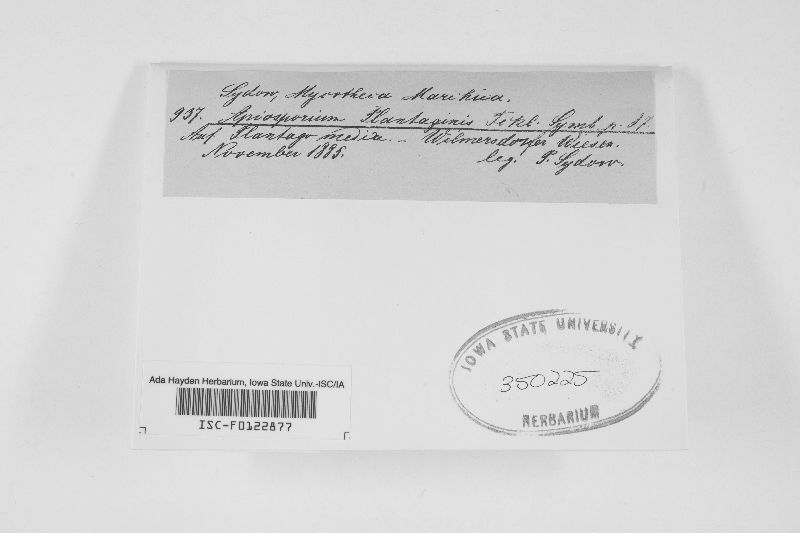 Sydow, Mycotheca Marchica.
937. Apiosporium Plantaginis Fckl. Symb. p. 87.
Auf Plantago media. - Wilmersdorfer Wiesen.
November 1885. leg. P. Sydow.
IOWA STATE UNIVERSITY
350225
HERBARIUM
Ada Hayden Herbarium, Iowa State Univ.-ISC/IA
ISC-F0122877